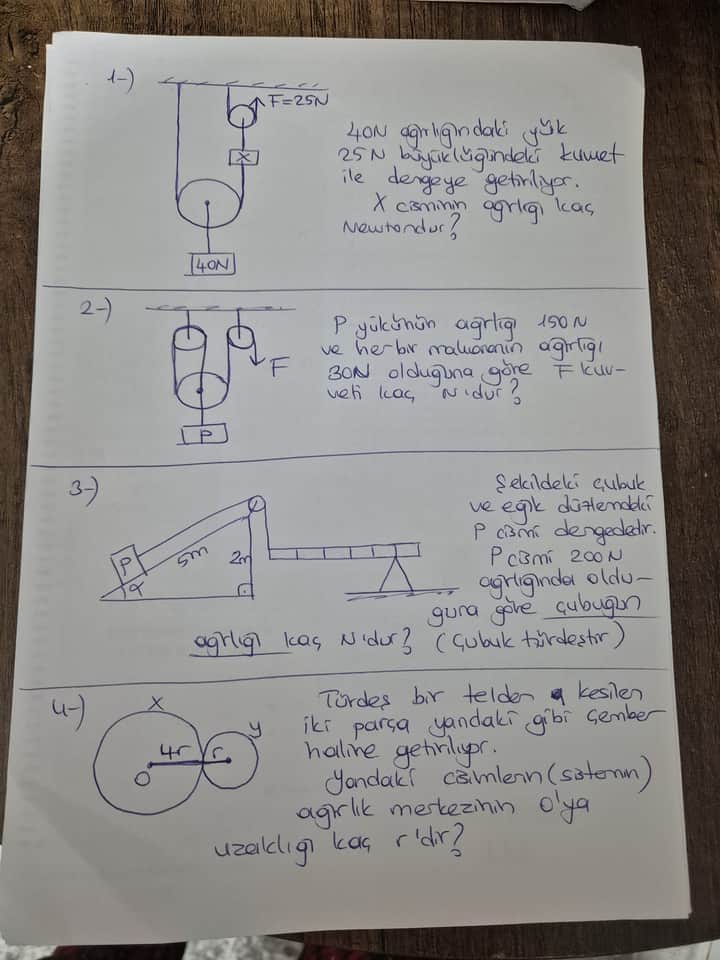 1-)
F=25N
X
40N
40N ağırlığındaki yük
25N büyüklüğündeki kuvvet
ile dengeye getiriliyor.
X cisminin ağırlığı kaç
Newtondur?
2-)
F
P
P yükünün ağırlığı 150N
ve herbir makaranın ağırlığı
30N olduğuna göre F kuv-
veti kaç N'dur?
3-)
P
5m
2m
α
Şekildeki çubuk
ve eğik düzlemdeki
P cismi dengededir.
P cismi 200N
ağırlığında oldu-
ğuna göre çubuğun
ağırlığı kaç N'dur? (Çubuk türdeştir)
4-)
X
y
4r
r
O
Türdeş bir telden kesilen
iki parça yandaki gibi çember
haline getiriliyor.
Yandaki cisimlerin (sistemin)
ağırlık merkezinin O'ya
uzaklığı kaç r'dir?